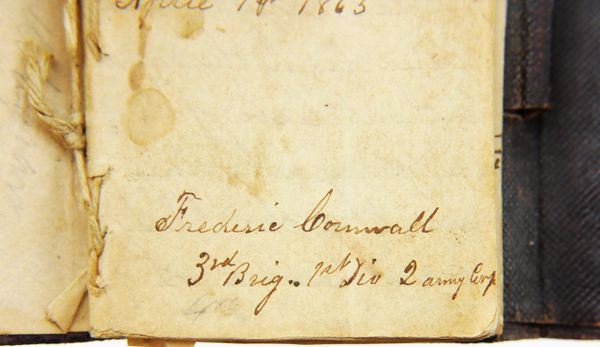 April 19th 1863
Frederic Cornwall
3rd Brig. 1st Div 2 army Corp